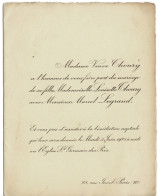 Madame Veuve Thoury
a l'honneur de vous faire part du mariage
de sa fille, Mademoiselle Louisette Thoury
avec Monsieur Marcel Legrand.
Et vous prie d'assister à la bénédiction nuptiale
qui leur sera donnée le Mardi Juin
en l'Eglise St Germain des Prés.
rue Paris